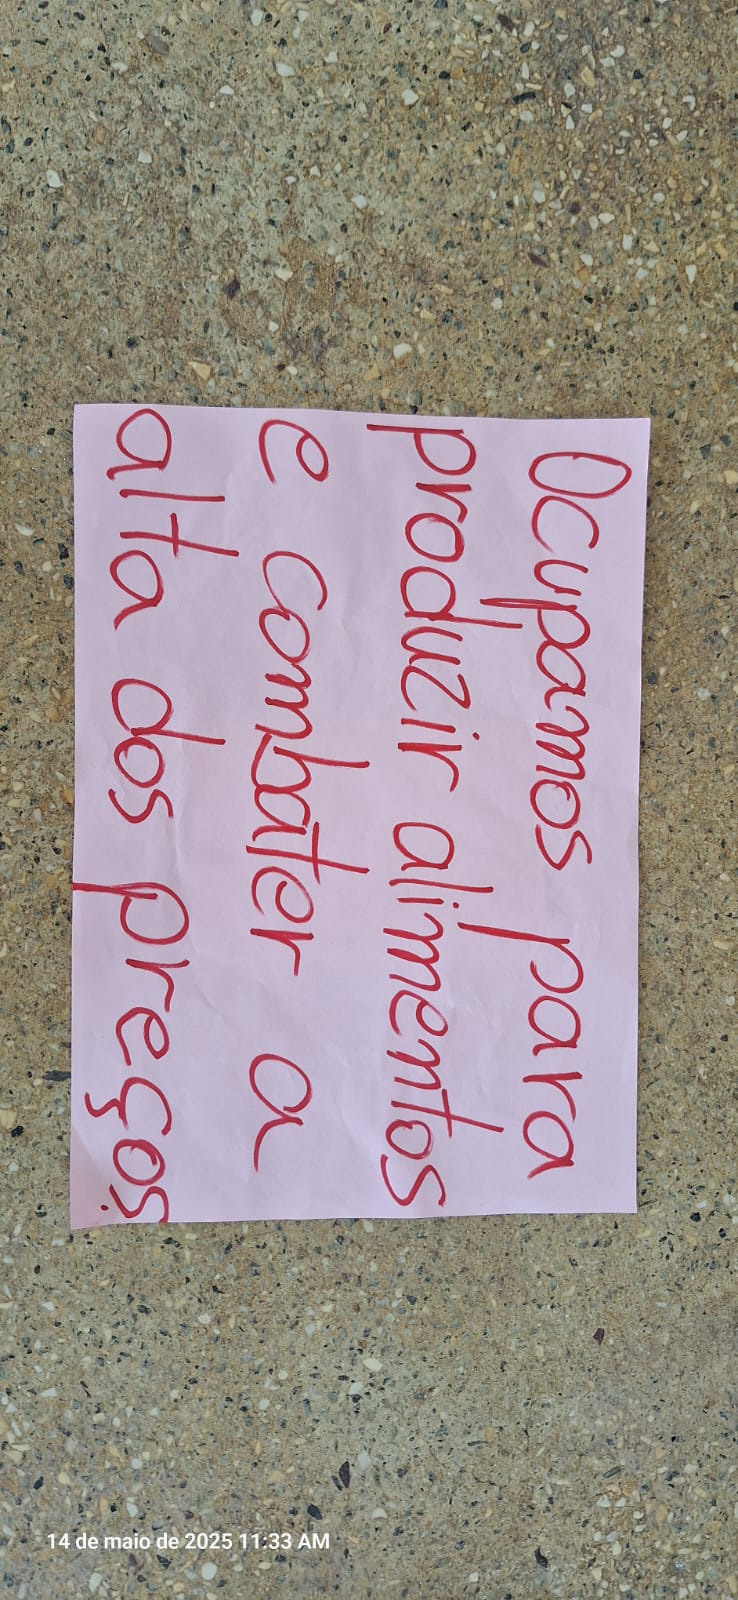 Ocupamos para
produzir alimentos
e combater a
alta dos preços.
14 de maio de 2025 11:33 AM